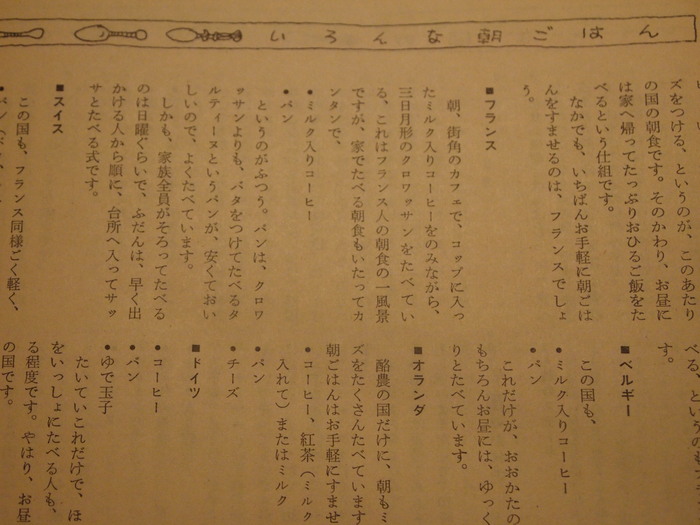 いろんな朝ごはん
ズをつける、というのが、このあたり
の国の朝食です。そのかわり、お昼に
は家へ帰ってたっぷりおひるご飯をた
べるという仕組です。
なかでも、いちばんお手軽に朝ごは
んをすませるのは、フランスでしょ
う。
■フランス
朝、街角のカフェで、コップに入っ
たミルク入りコーヒーをのみながら、
三日月形のクロワッサンをたべてい
る、これはフランス人の朝食の一風景
ですが、家でたべる朝食もいたってカ
ンタンで、
●ミルク入りコーヒー
●パン
というのがふつう。パンは、クロワ
ッサンよりも、バタをつけてたべるタ
ルティーヌというパンが、安くておい
しいので、よくたべています。
しかも、家族全員がそろってたべる
のは日曜ぐらいで、ふだんは、早く出
かける人から順に、台所へ入ってサッ
サとたべる式です。
■スイス
この国も、フランス同様ごく軽く、
●パン
べる、というのも
す。
■ベルギー
この国も、
●ミルク入りコーヒー
●パン
これだけが、おおかたの
もちろんお昼には、ゆっく
りとたべています。
■オランダ
酪農の国だけに、朝もミ
ズをたくさんたべています
朝ごはんはお手軽にすませ
●コーヒー、紅茶（ミルク
入れて）またはミルク
●パン
●チーズ
■ドイツ
●コーヒー
●パン
●ゆで玉子
たいていこれだけで、ほ
をいっしょにたべる人も、
る程度です。やはり、お昼
の国です。